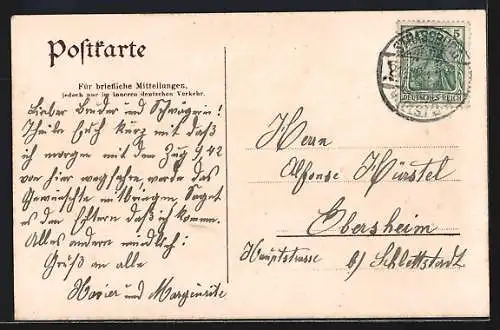 Postkarte
Für briefliche Mitteilungen,
jedoch nur im inneren deutschen Verkehr.
Lieber Bruder und Schwägerin!
Theile Euch kurz mit daß
ich morgen mit dem Zug 9 42
von hier wegfahre werde das
Gewünschte mitbringen Saget
es den Eltern daß ich komme.
Alles andere mündlich:
Gruß an alle
Xavier und Marguerite
STRASSBURG
5
DEUTSCHES REICH
Herrn
Alfonse Hürstel
Ebersheim
Hauptstrasse b/ Schlettstadt